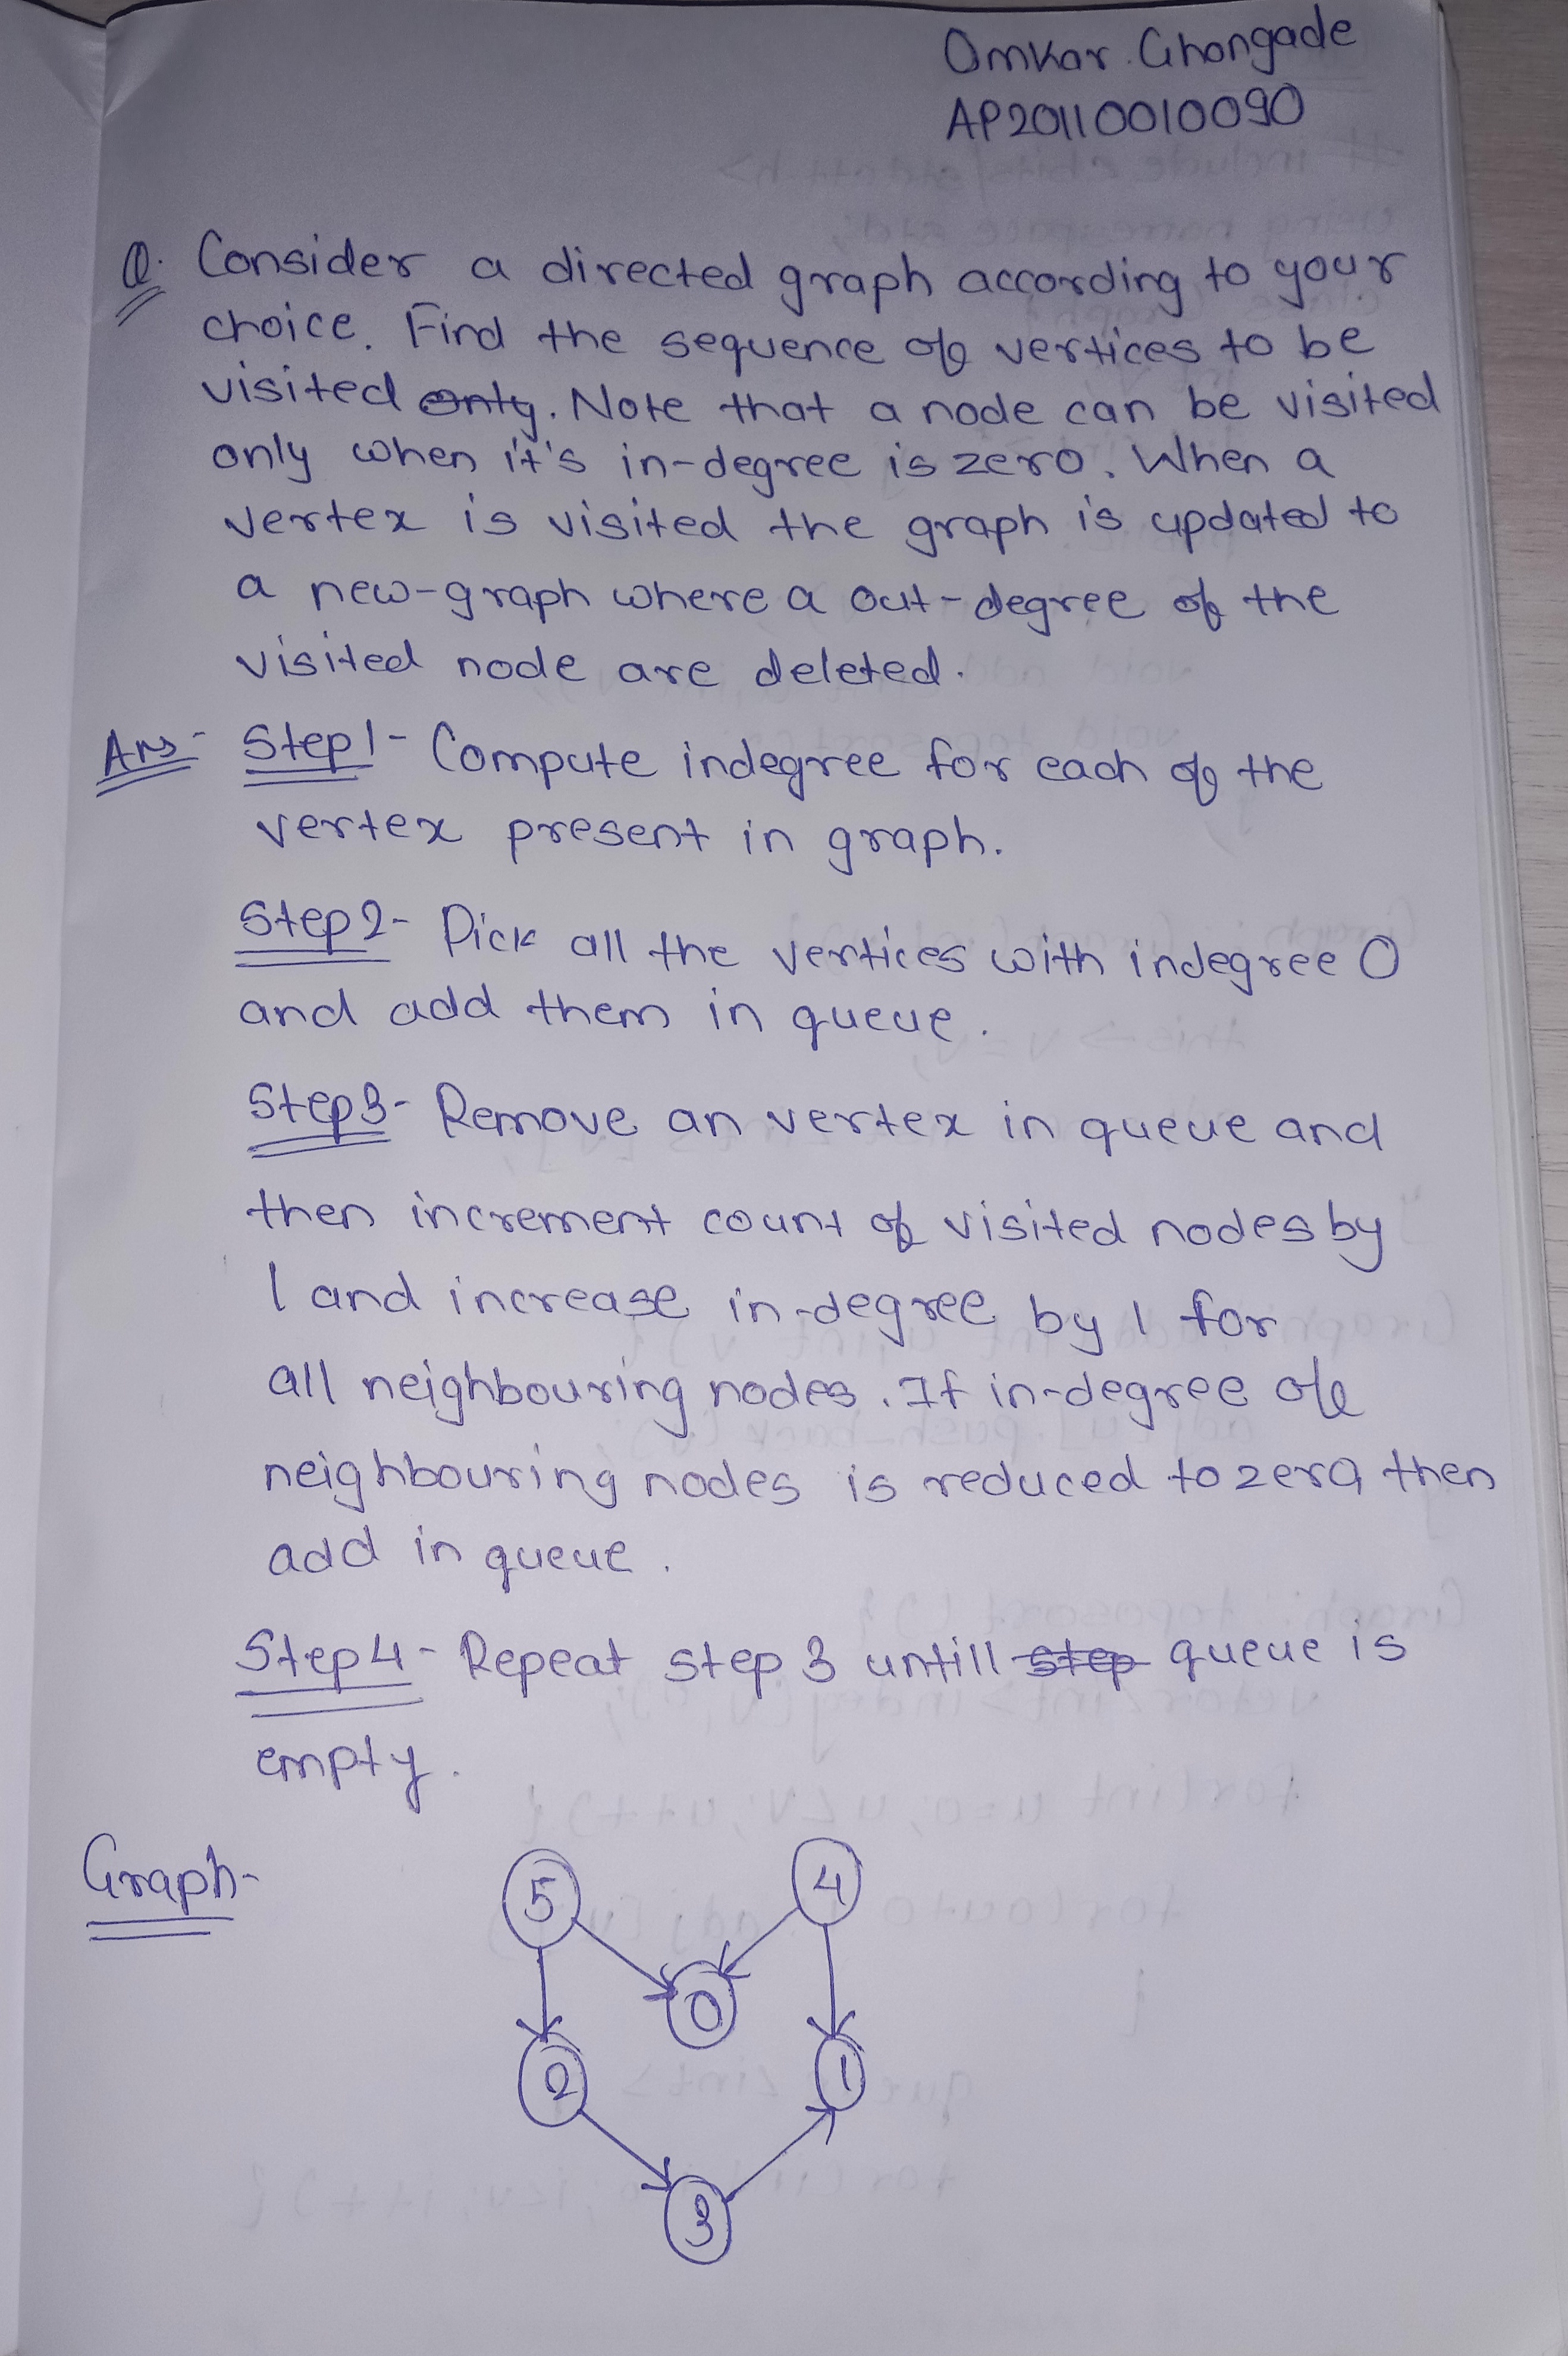 Omkar. Ghongade
AP20110010090
Q. Consider a directed graph according to your
choice. Find the sequence of vertices to be
visited only. Note that a node can be visited
only when it's in-degree is zero. When a
vertex is visited the graph is updated to
a new-graph where a out-degree of the
visited node are deleted.
Ans- Step1- Compute indegree for each of the
vertex present in graph.
Step2- Pick all the vertices with indegree 0
and add them in queue.
Step3- Remove an vertex in queue and
then increment count of visited nodes by
1 and increase in-degree by 1 for
all neighbouring nodes. If in-degree of
neighbouring nodes is reduced to zero then
add in queue.
Step4- Repeat step 3 untill step queue is
empty.
Graph-
5 4
0
2 1
3